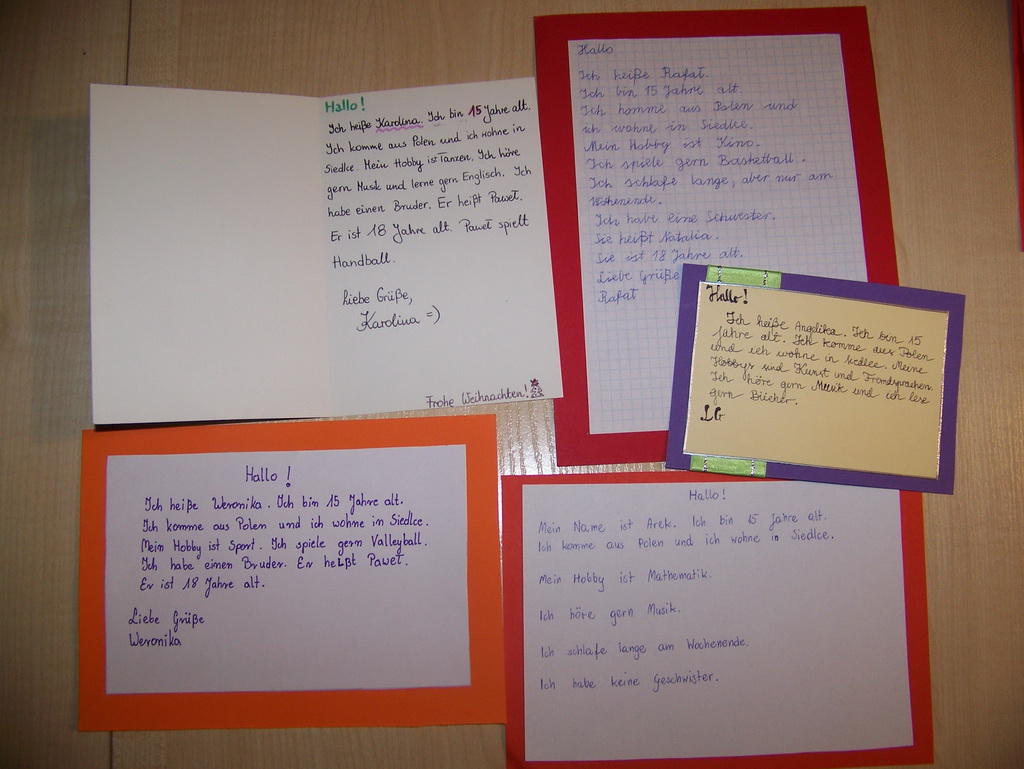 Hallo!
Ich heiße Karolina. Ich bin 15 Jahre alt.
Ich komme aus Polen und ich wohne in
Siedlce. Mein Hobby ist Tanzen. Ich höre
gern Musik und lerne gern Englisch. Ich
habe einen Bruder. Er heißt Paweł.
Er ist 18 Jahre alt. Paweł spielt
Handball.
Liebe Grüße,
Karolina =)
Frohe Weihnachten!
Hallo
Ich heiße Rafał.
Ich bin 15 Jahre alt.
Ich komme aus Polen und
ich wohne in Siedlce.
Mein Hobby ist Kino.
Ich spiele gern Basketball.
Ich schlafe lange, aber nur am
Wochenende.
Ich habe eine Schwester.
Sie heißt Natalia.
Sie ist 18 Jahre alt.
Liebe Grüße
Rafał
Hallo!
Ich heiße Angelika. Ich bin 15
Jahre alt. Ich komme aus Polen
und ich wohne in Siedlce. Meine
Hobbys sind Kunst und Fremdsprachen.
Ich höre gern Musik und ich lese
gern Bücher.
LG
Hallo!
Ich heiße Weronika. Ich bin 15 Jahre alt.
Ich komme aus Polen und ich wohne in Siedlce.
Mein Hobby ist Sport. Ich spiele gern Valleyball.
Ich habe einen Bruder. Er heißt Paweł.
Er ist 18 Jahre alt.
Liebe Grüße
Weronika
Hallo!
Mein Name ist Arek. Ich bin 15 Jahre alt.
Ich komme aus Polen und ich wohne in Siedlce.
Mein Hobby ist Mathematik.
Ich höre gern Musik.
Ich schlafe lange am Wochenende.
Ich habe keine Geschwister.